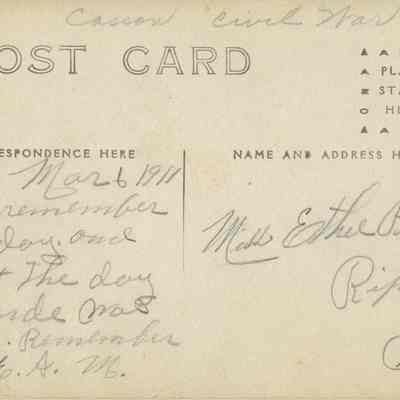 Casson Civil War
OST CARD
PLA
STA
H
RESPONDENCE HERE
NAME AND ADDRESS H
Mar 6 1911
remember
day and
the day
was
Remember
A. M.
Miss Ethel B
Rip